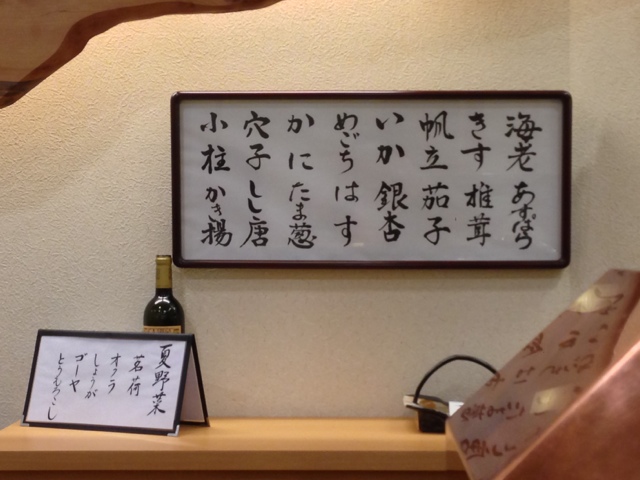 海老 あすぱら
きす 椎茸
帆立 茄子
いか 銀杏
めごち はす
かに たま葱
穴子 しし唐
小柱 かき揚
夏野菜
茗荷
オクラ
しょうが
ゴーヤ
とうもろこし